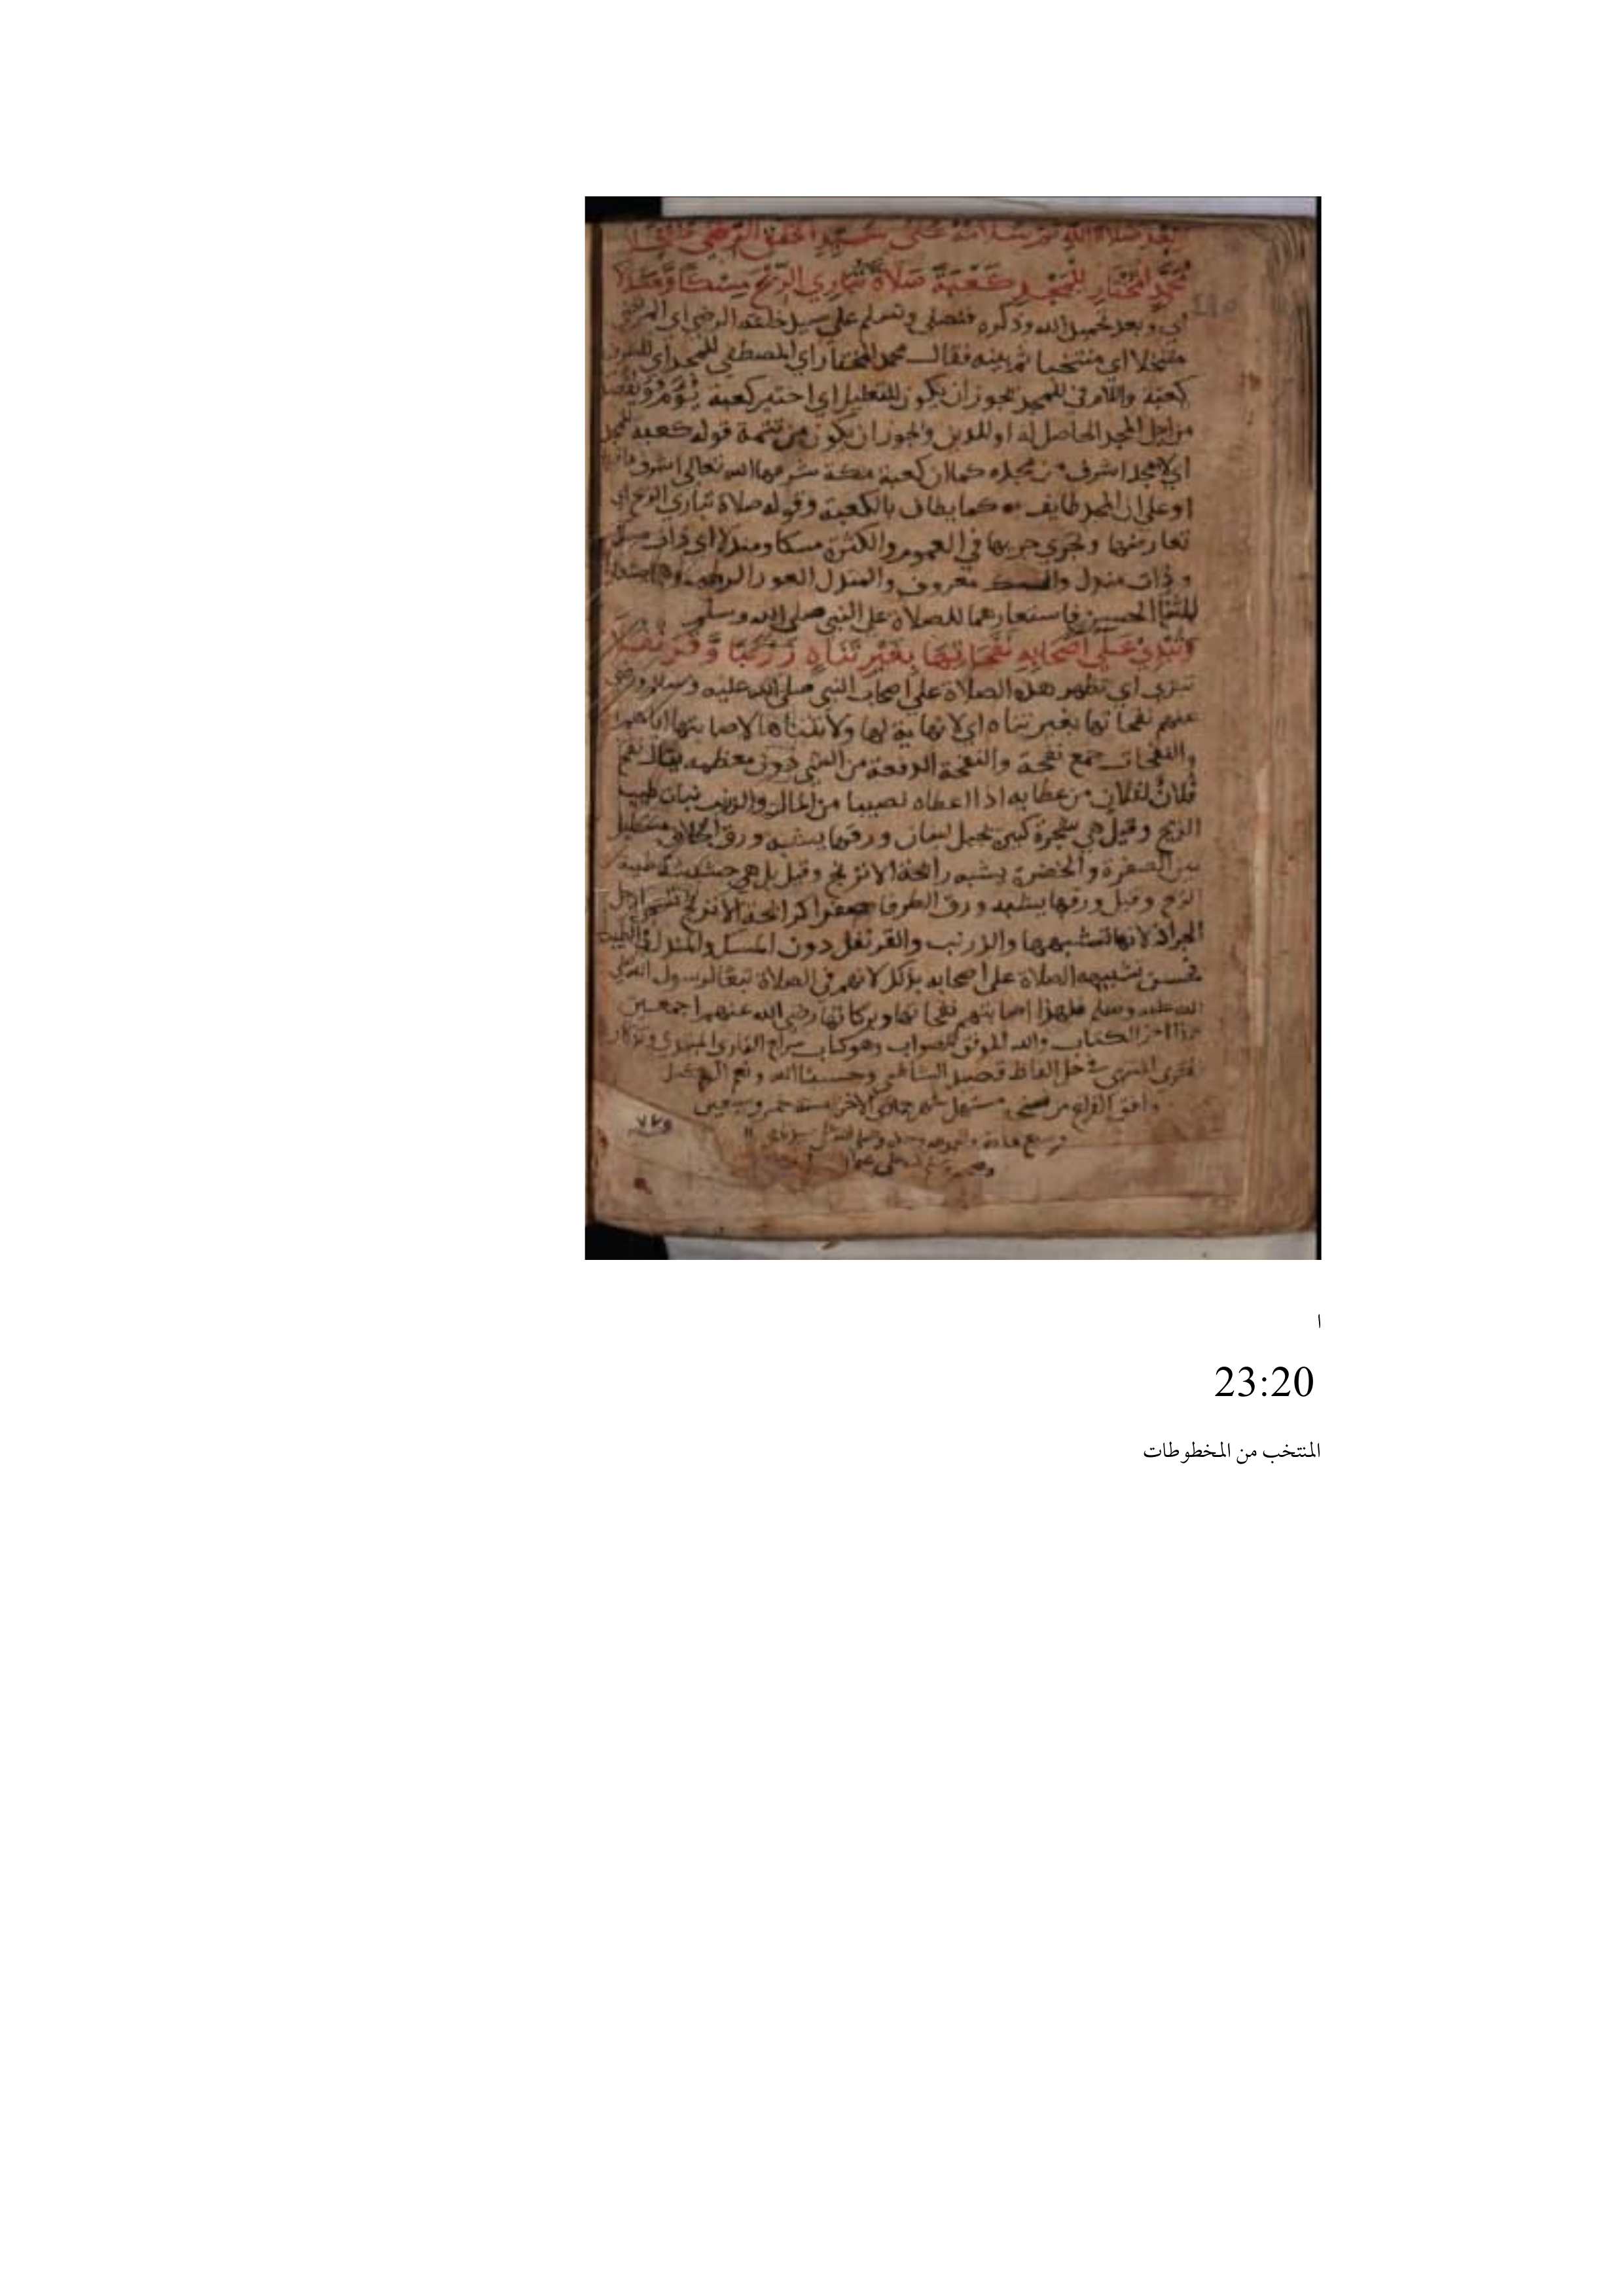 محمد المختار للمجد كعبة صلاة تباري الريح مسكا ومندلا
اي وبعد تحميد الله وذكره فنصلي ونسلم على سيد خلقه الرضي اي المرتضى
متنخلا اي منتخبا ثم بينه فقال محمد المختار اي المصطفى للمجد اي للشرف
كعبة واللام في للمجد يجوز ان يكون للتعليل اي اختير كعبة يؤم ويقصد
من اجل المجد الحاصل له او للدين ويجوز ان يكون من تتمة قوله كعبة للمجد
اي لا مجد اشرف من مجده كما ان كعبة مكة شرفها الله تعالى اشرف
او على ان المجد طايف به كما يطاف بالكعبة وقوله صلاة تباري الريح اي
تعارضها وتجري جريها في العموم والكثرة مسكا ومندلا اي ذات مسك
وذات مندل والمسك معروف والمندل العود
للثنا الحسن فاستعارهما للصلاة على النبي صلى الله وسلم
وتبدي على اصحابه نفحاتها بغير تناه زرنبا وقرنفلا
تبدي اي تظهر هذه الصلاة على اصحاب النبي صلى الله عليه وسلم ورضي
عنهم نفحاتها بغير تناه اي لا نهاية لها
والنفحات جمع نفحة والنفحة الدفعة من الشي دون معظمه يقال نفح
فلان لفلان من عطايه اذا اعطاه نصيبا من المال والزرنب نبات طيب
الريح وقيل هي شجرة كبيرة بجبل لبنان ورقها يشبه ورق الخلاف مستطيل
بين الصفرة والخضرة يشبه رائحة الاترنج وقيل بل هي حشيشة طيبة
الريح وقيل ورقها يشبه ورق الطرفا
الجراد لانها تشبهها والزرنب والقرنفل دون المسك والمندل في الطيب
فحسن تشبيه الصلاة على اصحابه بذلك لانهم في الصلاة تبعا لرسول الله صلى
الله عليه وسلم فلهذا اصابتهم نفحاتها وبركاتها رضي الله عنهم اجمعين
هذا اخر الكتاب والله الموفق للصواب وهو كتاب سراج القاري المبتدي وتذكار
المقري المنتهي في حل الفاظ قصيد الشاطبي وحسبنا الله ونعم الوكيل
وافق الفراغ من نسخه مستهل شهر جمادى الاخر سنة خمس وسبعين
٧٧٥
ا
23:20
المنتخب من المخطوطات